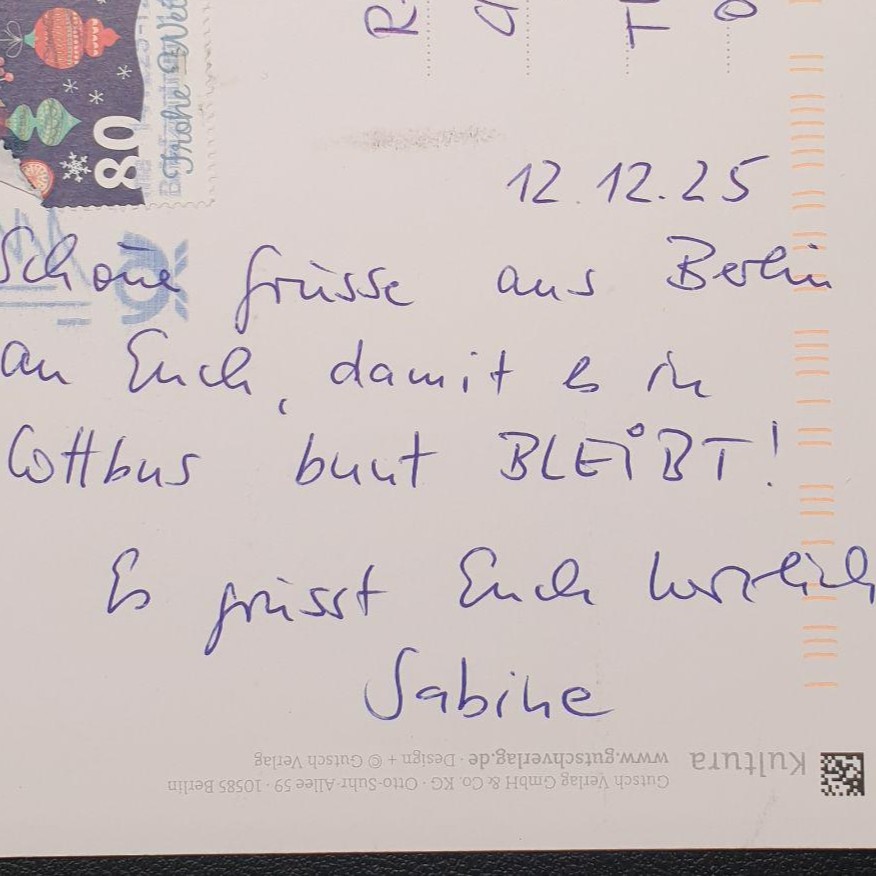 80
Frohe
12.12.25
Schöne Grüsse aus Berlin
an Euch, damit es in
Cottbus bunt BLEIBT!
Es grüsst Euch herzlich
Sabine
Kultura
www.gutschverlag.de · Design + © Gutsch Verlag
Gutsch Verlag GmbH & Co. KG · Otto-Suhr-Allee 59 · 10585 Berlin